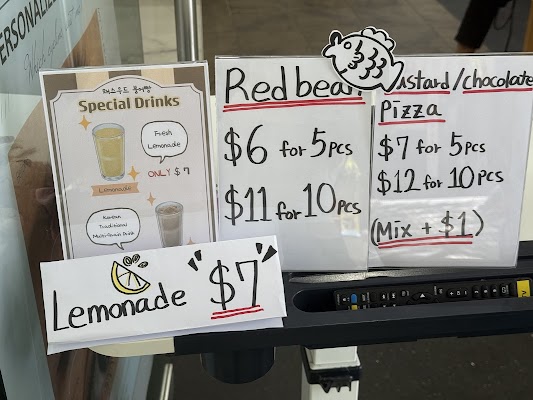 PERSONALIZE
Special Drinks
Fresh
Lemonade
ONLY $7
Lemonade
Korean
Traditional
Multi-Grain Drink
Lemonade "$7"
Red bean
$6 for 5pcs
$11 for 10pcs
Custard/chocolate
Pizza
$7 for 5pcs
$12 for 10pcs
(Mix + $1)